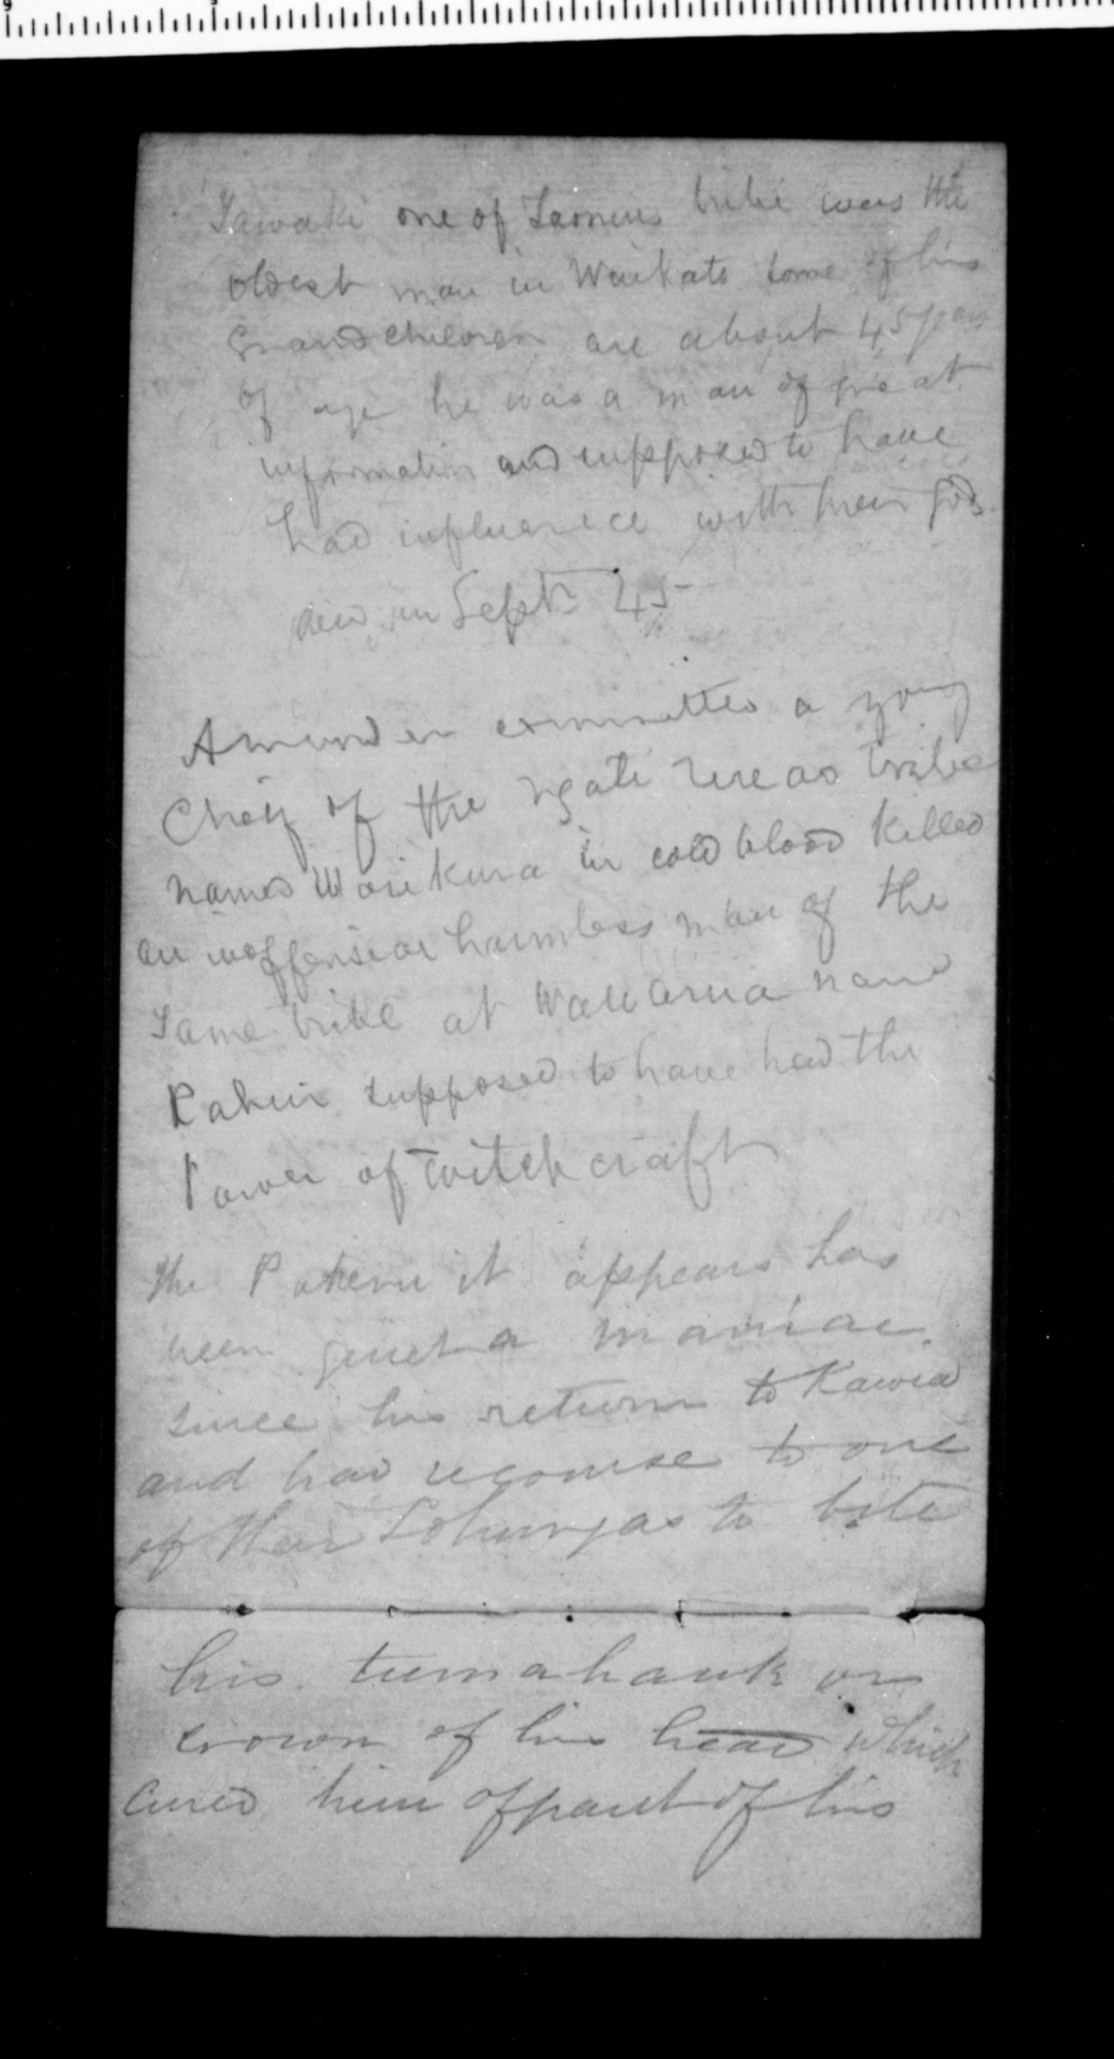 Tawaki one of Taonius tribe was the
oldest man in Waikato some of his
Grandchildren are about 45 years
of age he was a man of great
information and supposed to have
had influence with their gods.
died in Septr 45
A murder committed a young
Chief of the ngati rereao tribe
named Warikura in cold blood killed
an inoffensive harmless man of the
same tribe at Wauarua named
supposed to have had the
Power of witchcraft
The it appears has
been quiet a maniac
since his return to Kawia
and had recourse to one
of their Tohungas to bite
his tumahauk or
crown of his head which
cured him of part of his